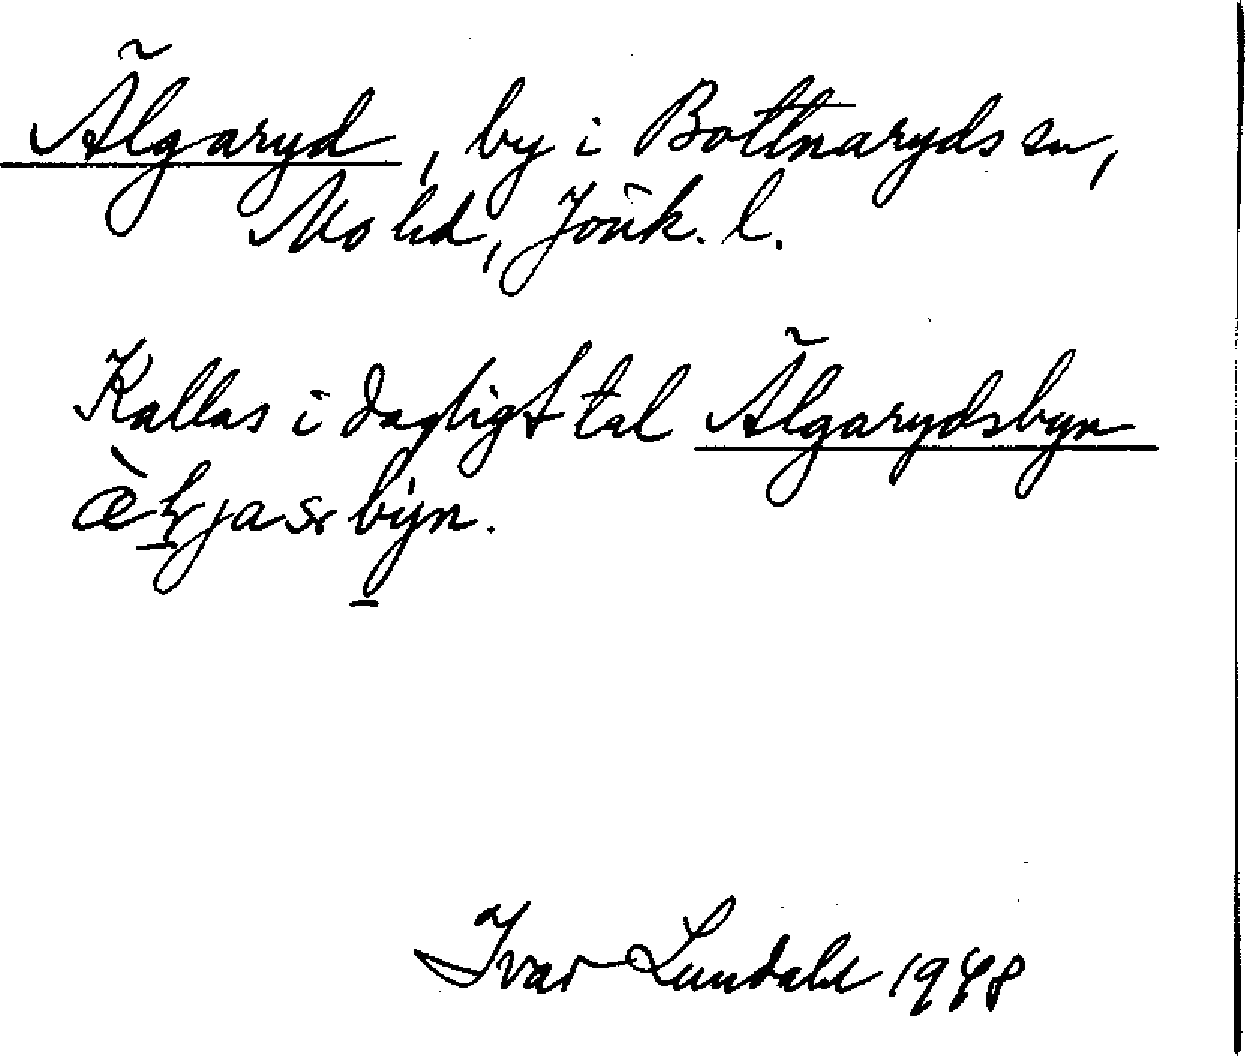 Älgaryd, by i Bottnaryds sn,
Mo hd, Jönk. l.
Kallas i dagligt tal Älgarydsbyn
Ivar Lundahl 1948